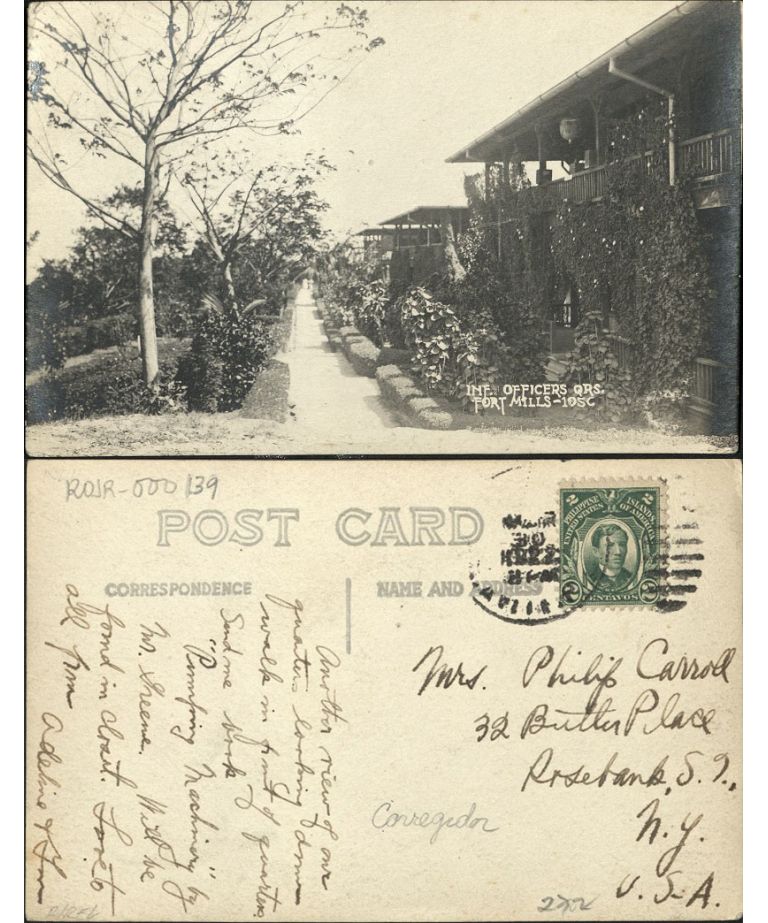 INF. OFFICERS QRS.
FORT MILLS-105C
ROJR-000139
POST CARD
CORRESPONDENCE
NAME AND ADDRESS
2 2
PHILIPPINE ISLANDS
UNITED STATES OF AMERICA
2 2
CENTAVOS
Another view of our
quarters looking down
walk in front of quarters.
Send me book of
"Pumping Machinery" by
Mr. Greene. Will be
found in closet. Love to
all from Adeline &
Mrs. Philip Carroll
32 Butler Place
Rosebank, S.I.,
N.Y.
U.S.A.
Corregidor